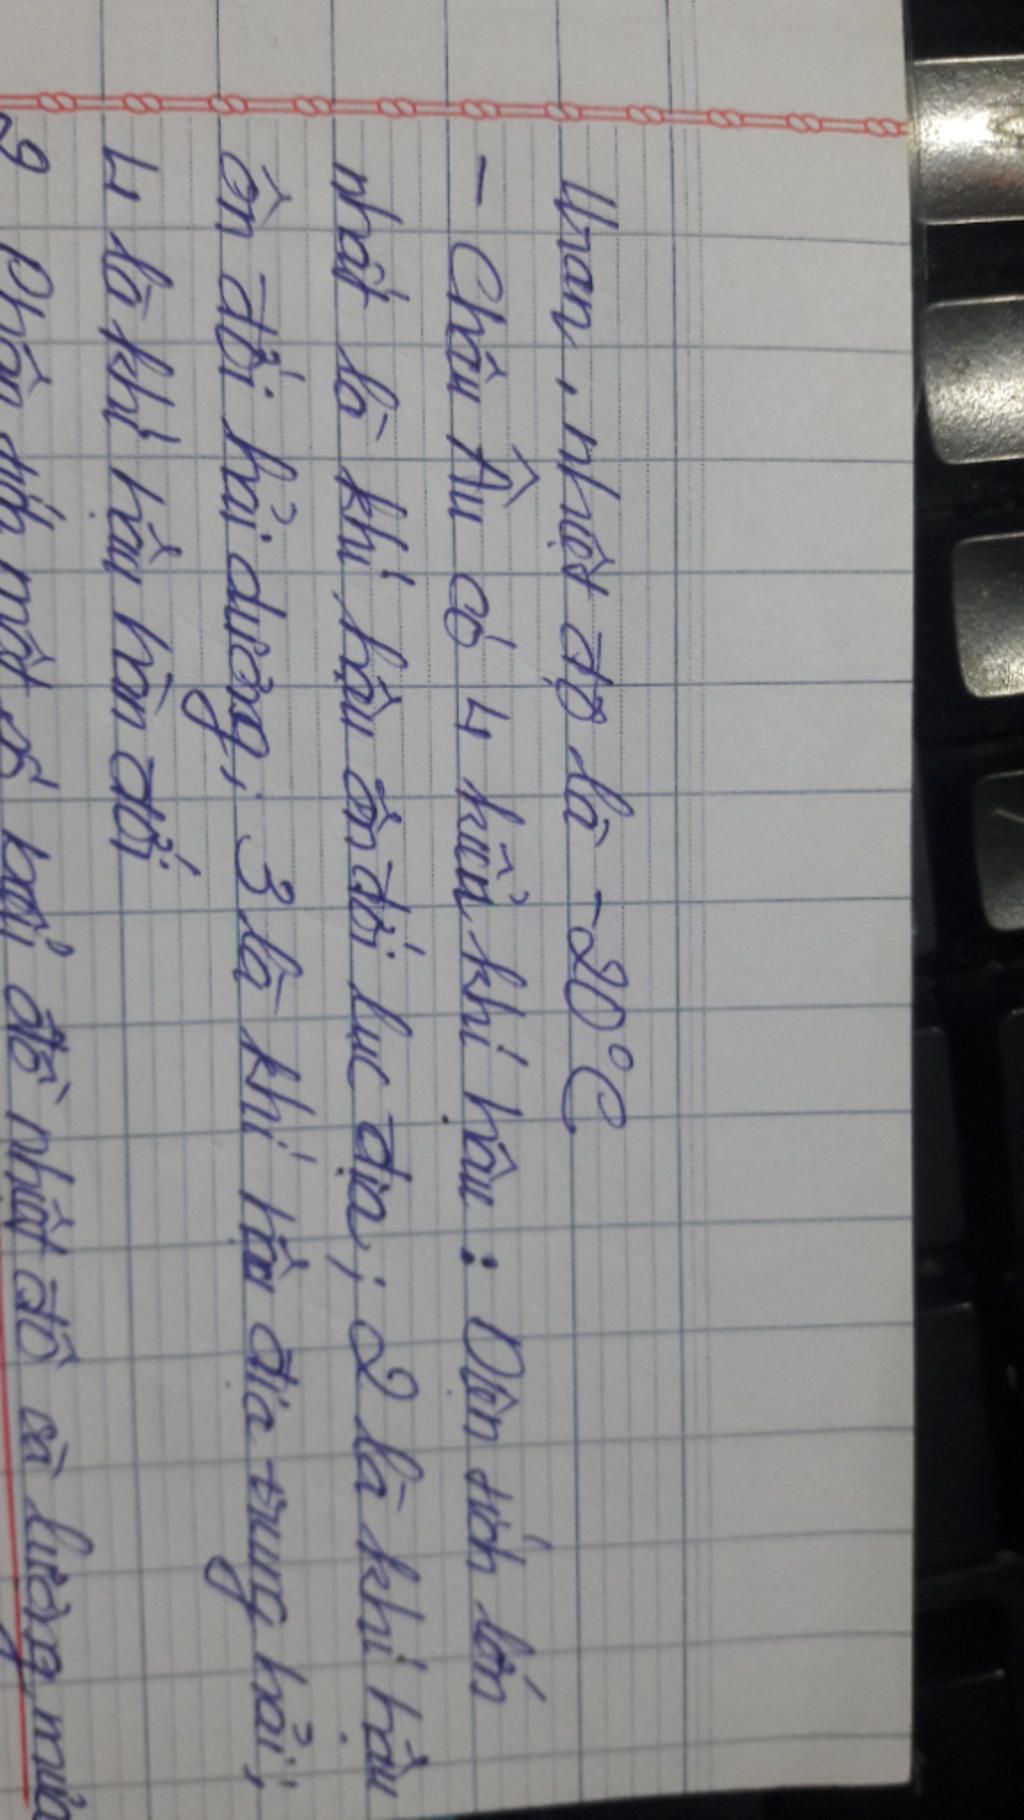 Uran, nhiệt độ là -20°C
- Châu Âu có 4 kiểu khí hậu : Diện tích lớn
nhất là khí hậu ôn đới lục địa ; 2 là khí hậu
ôn đới hải dương ; 3 là khí hậu địa trung hải ;
4 là khí hậu hàn đới
2, Phân tích một số biểu đồ nhiệt độ và lượng mưa